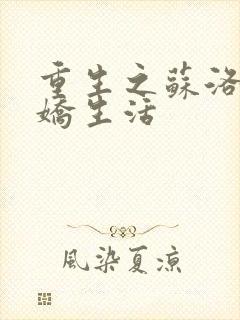 重生之蘇洛
嬌生活
風染夏涼